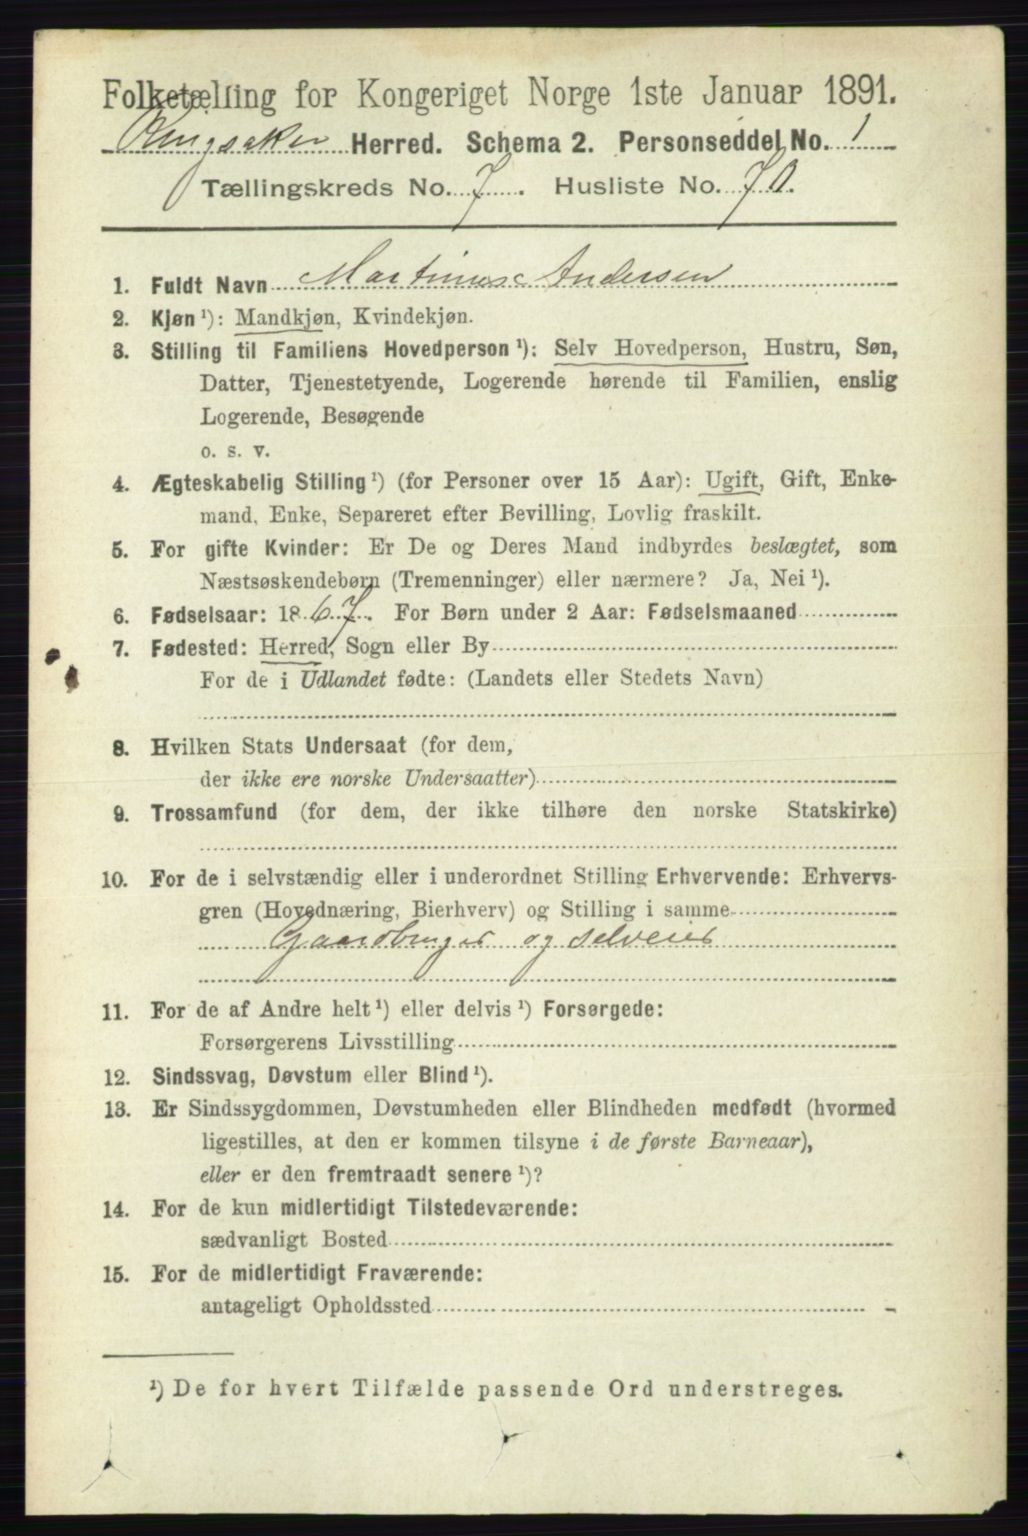 Folketælling for Kongeriget Norge 1ste Januar 1891.
Ringsaker Herred. Schema 2. Personseddel No. 1
Tællingskreds No. 7. Husliste No. 70.
1. Fuldt Navn Martinus Andersen
2. Kjøn ¹): Mandkjøn, Kvindekjøn.
3. Stilling til Familiens Hovedperson ¹): Selv Hovedperson, Hustru, Søn,
Datter, Tjenestetyende, Logerende hørende til Familien, enslig
Logerende, Besøgende
o. s. v.
4. Ægteskabelig Stilling ¹) (for Personer over 15 Aar): Ugift, Gift, Enke-
mand, Enke, Separeret efter Bevilling, Lovlig fraskilt.
5. For gifte Kvinder: Er De og Deres Mand indbyrdes beslægtet, som
Næstsøskendebørn (Tremenninger) eller nærmere? Ja, Nei ¹).
6. Fødselsaar: 1867. For Børn under 2 Aar: Fødselsmaaned
7. Fødested: Herred, Sogn eller By
For de i Udlandet fødte: (Landets eller Stedets Navn)
8. Hvilken Stats Undersaat (for dem,
der ikke ere norske Undersaatter)
9. Trossamfund (for dem, der ikke tilhøre den norske Statskirke)
10. For de i selvstændig eller i underordnet Stilling Erhvervende: Erhvervs-
gren (Hovednæring, Bierhverv) og Stilling i samme
Gaardbruger og selveier
11. For de af Andre helt ¹) eller delvis ¹) Forsørgede:
Forsørgerens Livsstilling
12. Sindssvag, Døvstum eller Blind ¹).
13. Er Sindssygdommen, Døvstumheden eller Blindheden medfødt (hvormed
ligestilles, at den er kommen tilsyne i de første Barneaar),
eller er den fremtraadt senere ¹)?
14. For de kun midlertidigt Tilstedeværende:
sædvanligt Bosted
15. For de midlertidigt Fraværende:
antageligt Opholdssted
¹) De for hvert Tilfælde passende Ord understreges.